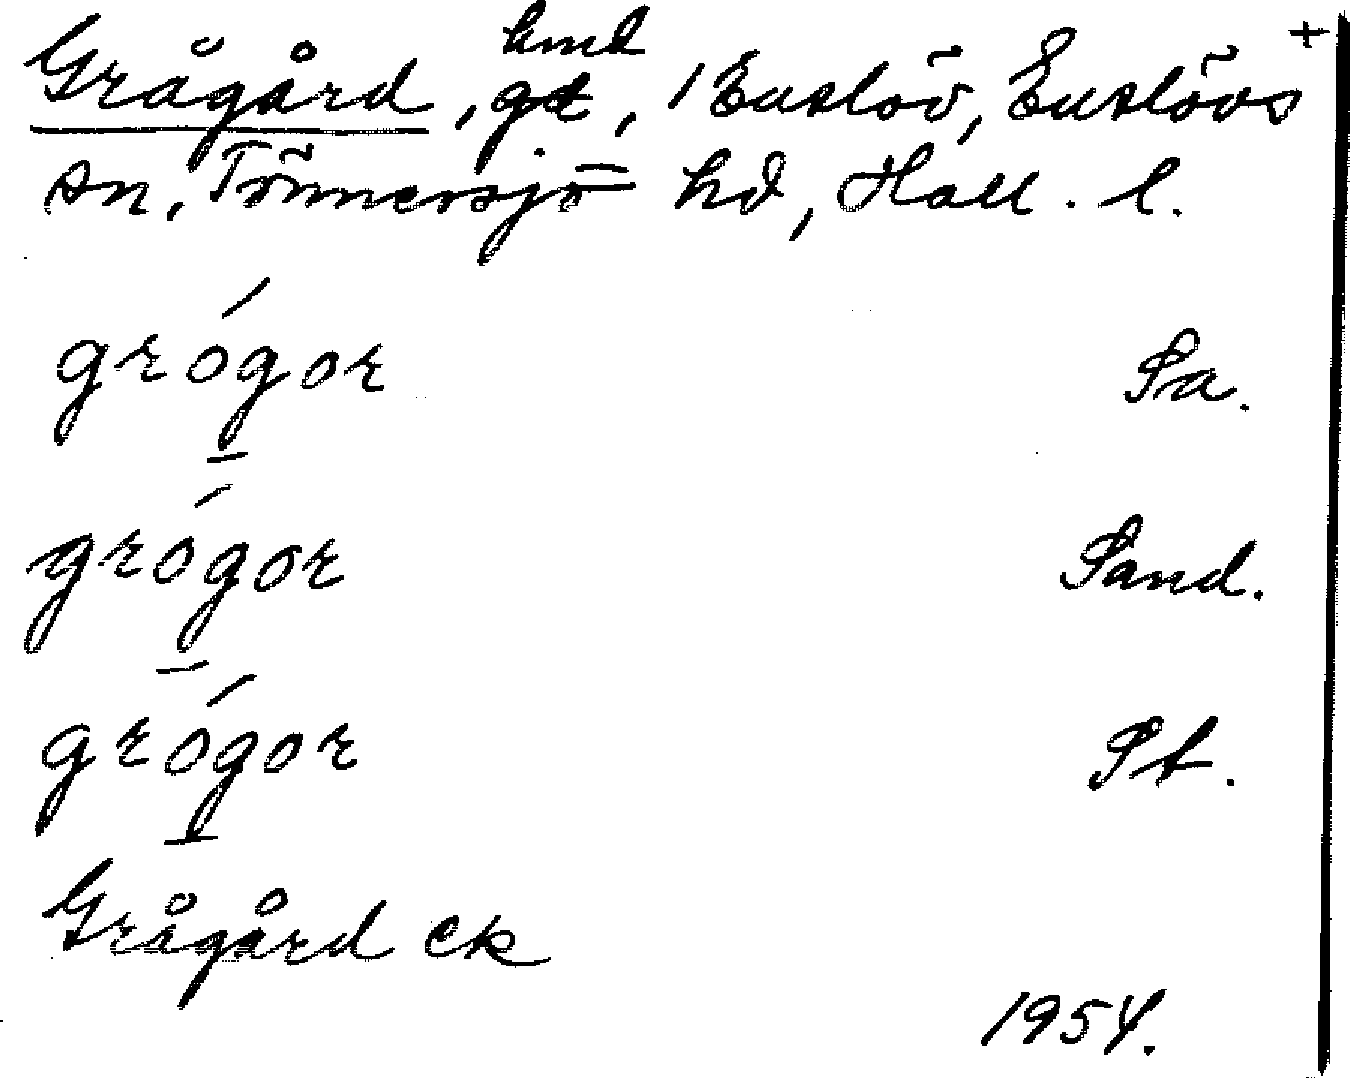 Grågård, hmd gd, i Euslöv, Euslövs +
sn, Tönnersjö hd, Hall. l.
grógor Sa.
grógor Sand.
grógor St.
Grågård ek
1954.